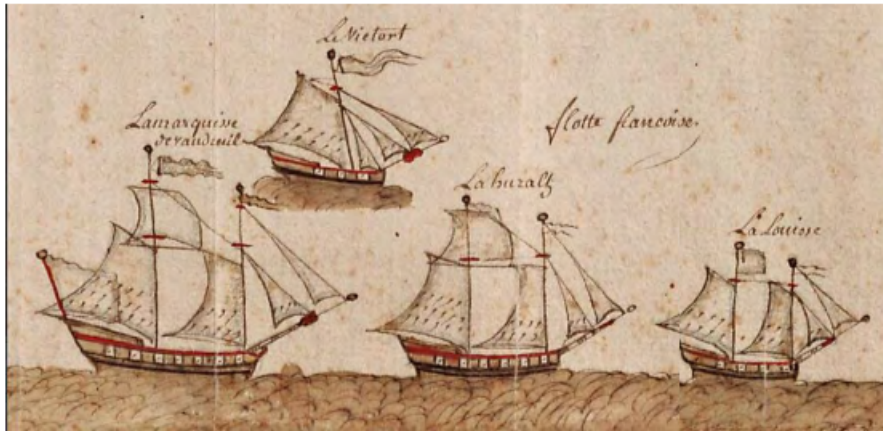 Le Victort
Lamarquisse
de vaudreuil
flotte francoise.
La huralt
La Louisse